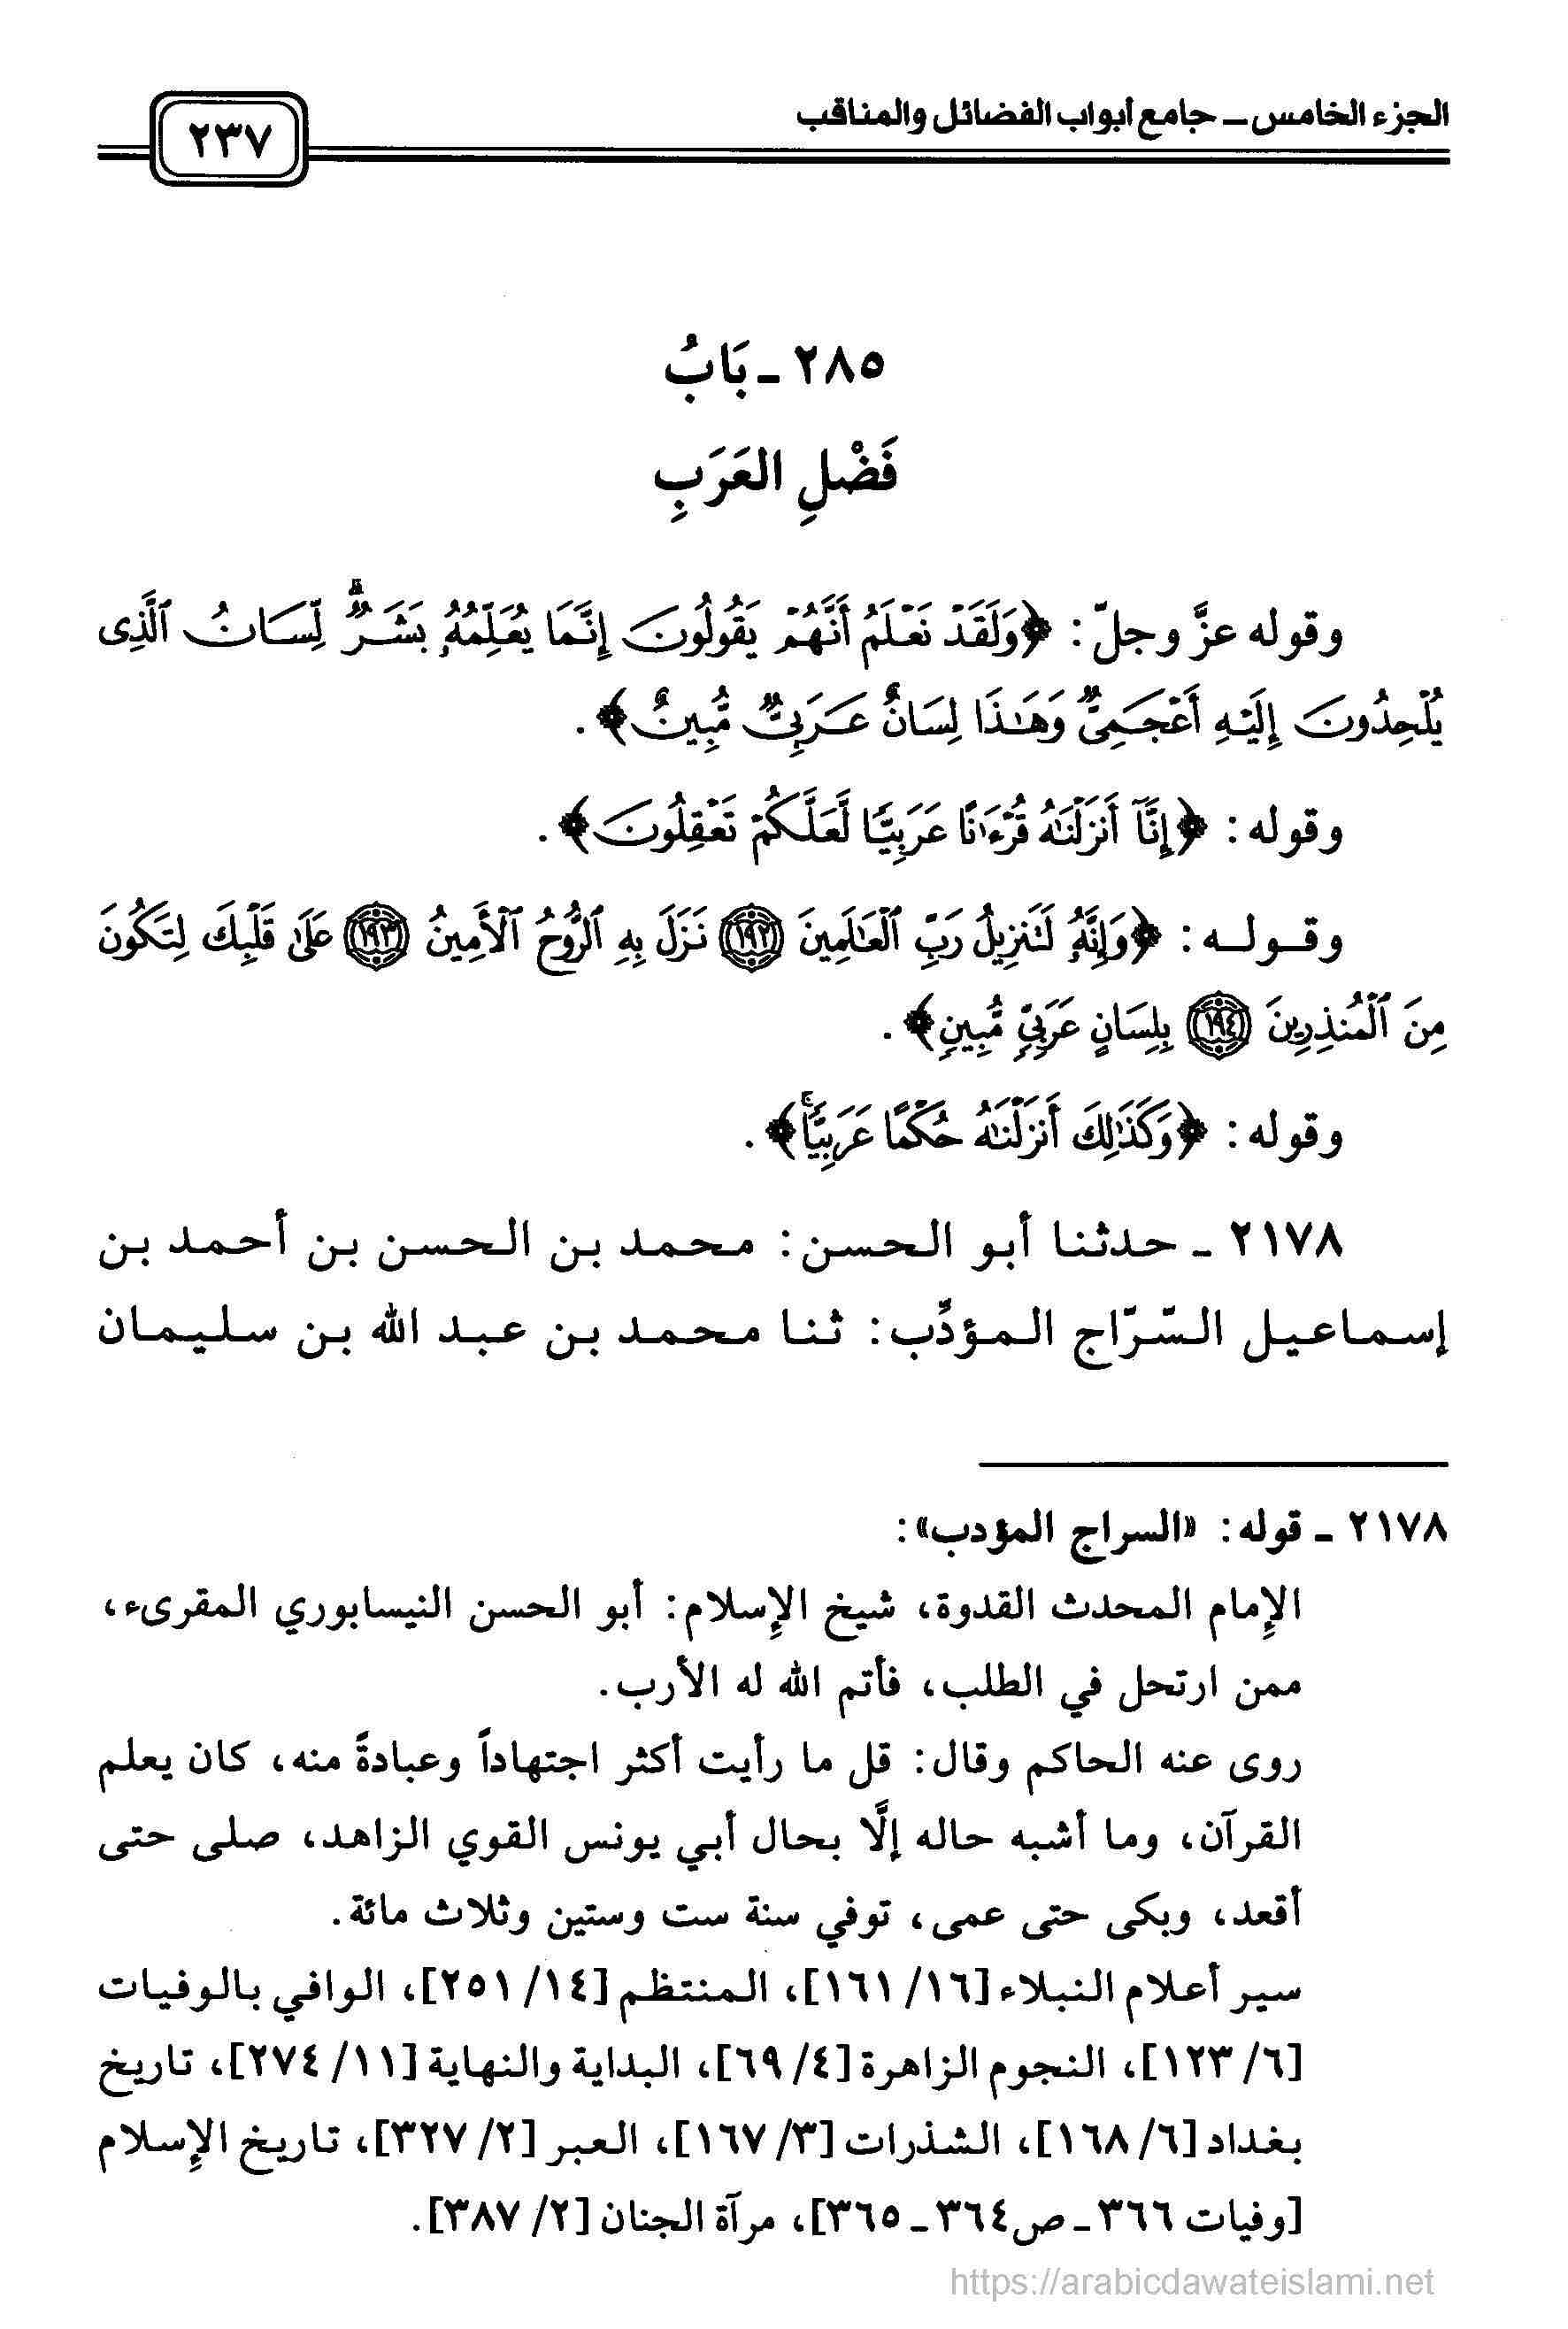 الجزء الخامس ــ جامع أبواب الفضائل والمناقب
٢٣٧
٢٨٥ ـ بَابُ
فَضْلِ العَرَبِ
وقوله عزَّ وجلّ: ﴿وَلَقَدْ نَعْلَمُ أَنَّهُمْ يَقُولُونَ إِنَّمَا يُعَلِّمُهُۥ بَشَرٌۗ لِّسَانُ ٱلَّذِى
يُلْحِدُونَ إِلَيْهِ أَعْجَمِىٌّ وَهَٰذَا لِسَانٌ عَرَبِىٌّ مُّبِينٌ﴾.
وقوله: ﴿إِنَّآ أَنزَلْنَٰهُ قُرْءَٰنًا عَرَبِيًّا لَّعَلَّكُمْ تَعْقِلُونَ﴾.
وقـولـه: ﴿وَإِنَّهُۥ لَتَنزِيلُ رَبِّ ٱلْعَٰلَمِينَ ١٩٢ نَزَلَ بِهِ ٱلرُّوحُ ٱلْأَمِينُ ١٩٣ عَلَىٰ قَلْبِكَ لِتَكُونَ
مِنَ ٱلْمُنذِرِينَ ١٩٤ بِلِسَانٍ عَرَبِىٍّ مُّبِينٍ﴾.
وقوله: ﴿وَكَذَٰلِكَ أَنزَلْنَٰهُ حُكْمًا عَرَبِيًّاۚ﴾.
٢١٧٨ ـ حدثنا أبو الحسن: محمد بن الحسن بن أحمد بن
إسماعيل السّرّاج المؤدِّب: ثنا محمد بن عبد الله بن سليمان
٢١٧٨ ـ قوله: «السراج المؤدب»:
الإِمام المحدث القدوة، شيخ الإِسلام: أبو الحسن النيسابوري المقرىء،
ممن ارتحل في الطلب، فأتم الله له الأرب.
روى عنه الحاكم وقال: قل ما رأيت أكثر اجتهاداً وعبادةً منه، كان يعلم
القرآن، وما أشبه حاله إلَّا بحال أبي يونس القوي الزاهد، صلى حتى
أقعد، وبكى حتى عمى، توفي سنة ست وستين وثلاث مائة.
سير أعلام النبلاء [١٦/ ١٦١]، المنتظم [١٤/ ٢٥١]، الوافي بالوفيات
[٦/ ١٢٣]، النجوم الزاهرة [٤/ ٦٩]، البداية والنهاية [١١/ ٢٧٤]، تاريخ
بغداد [٦/ ١٦٨]، الشذرات [٣/ ١٦٧]، العبر [٢/ ٣٢٧]، تاريخ الإِسلام
[وفيات ٣٦٦ ـ ص٣٦٤ ـ ٣٦٥]، مرآة الجنان [٢/ ٣٨٧].
https://arabicdawateislami.net